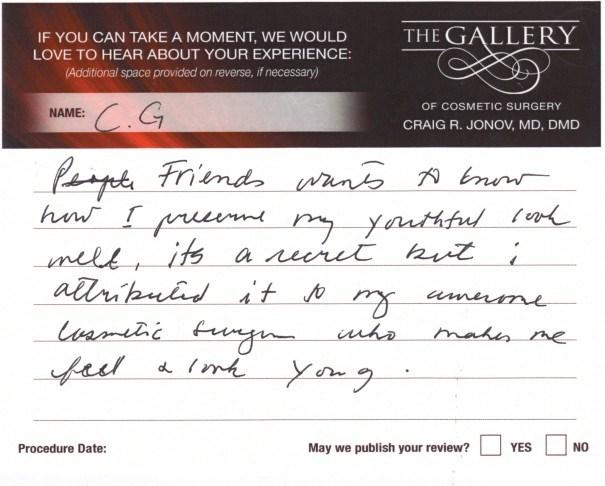 IF YOU CAN TAKE A MOMENT, WE WOULD
LOVE TO HEAR ABOUT YOUR EXPERIENCE:
(Additional space provided on reverse, if necessary)
NAME: C.G
THE GALLERY
OF COSMETIC SURGERY
CRAIG R. JONOV, MD, DMD
People Friends wants to know
how I preserve my youthful look
well, its a secret but i
attributed it to my awesome
cosmetic surgeon who makes me
feel & look young.
Procedure Date:
May we publish your review? YES NO